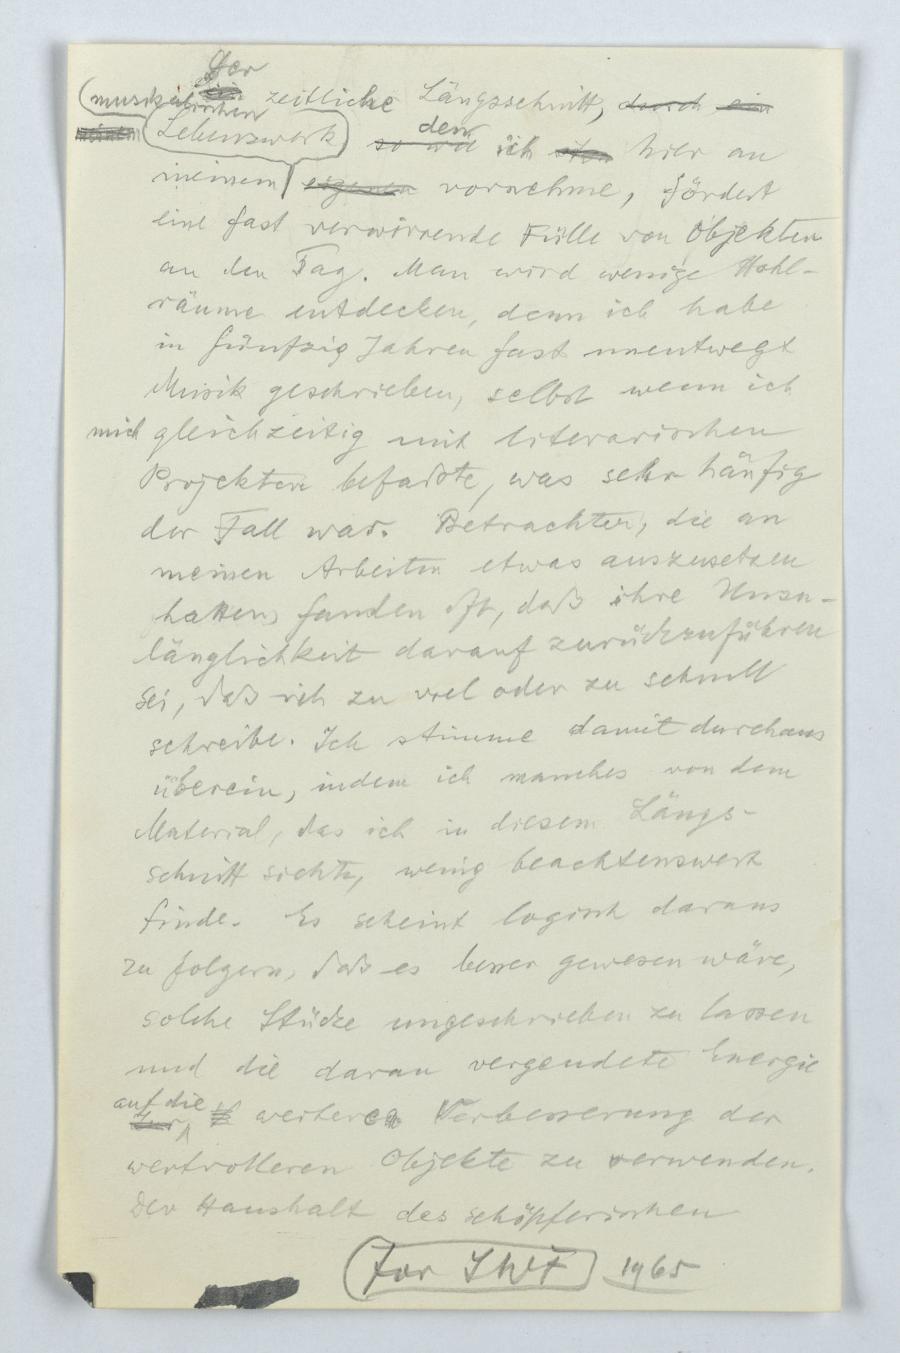 Der
zeitliche Längsschnitt, durch ein
(musikalischen
Lebenswerk) so wie dem ich hier an
meinem eigenen vornehme, fördert
eine fast verwirrende Fülle von Objekten
an den Tag. Man wird wenige Hohl-
räume entdecken, denn ich habe
in fünfzig Jahren fast unentwegt
Musik geschrieben, selbst wenn ich
mich gleichzeitig mit literarischen
Projekten befaßte, was sehr häufig
der Fall war. Betrachter, die an
meinen Arbeiten etwas auszusetzen
hatten, fanden oft, daß ihre Unzu-
länglichkeit darauf zurückzuführen
sei, daß ich zu viel oder zu schnell
schreibe. Ich stimme damit durchaus
überein, indem ich manches von dem
Material, das ich in diesem Längs-
schnitt sichte, wenig beachtenswert
finde. Es scheint logisch daraus
zu folgern, daß es besser gewesen wäre,
solche Stücke ungeschrieben zu lassen
und die daran vergeudete Energie
auf die weitere Verbesserung der
wertvolleren Objekte zu verwenden.
Der Haushalt des schöpferischen
For SWF 1965